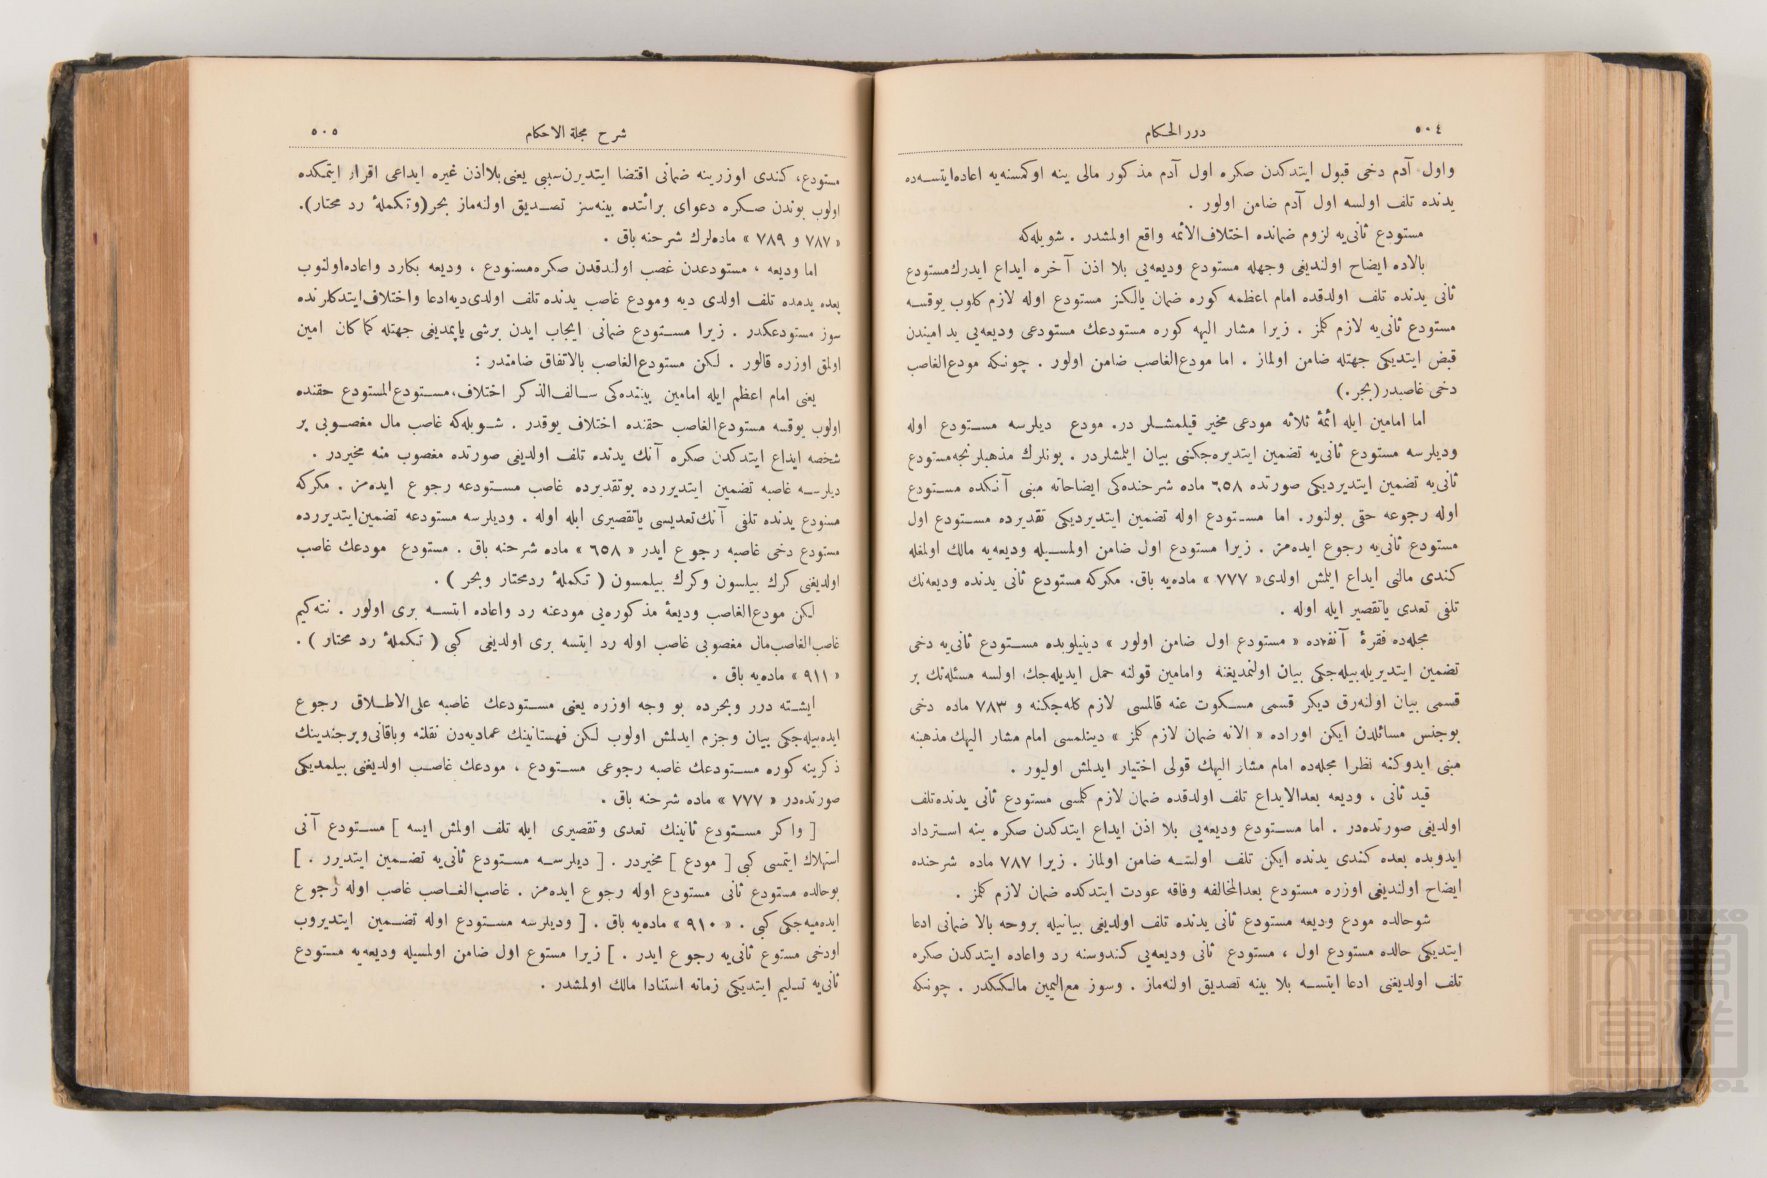 ٥٠٤
درر الحكام
واول آدم دخی قبول ایتدکدن صکره اول آدم مذکور مالی ینه اوکمسنه‌یه اعاده ایتسه‌ده
یدنده تلف اولسه اول آدم ضامن اولور .
مستودع ثانی‌یه لزوم ضمانده اختلاف‌الائمه واقع اولمشدر . شویله‌که
بالاده ایضاح اولندیغی وجهله مستودع ودیعه‌یی بلا اذن آخره ایداع ایدرك مستودع
ثانی یدنده تلف اولدقده امام اعظمه کوره ضمان یالکز مستودع اوله لازم کلوب یوقسه
مستودع ثانی‌یه لازم کلمز . زیرا مشار الیهه کوره مستودعك مستودعی ودیعه‌یی ید امیندن
قبض ایتدیکی جهتله ضامن اولماز . اما مودع‌الغاصب ضامن اولور . چونکه مودع‌الغاصب
دخی غاصبدر (بحر.)
اما امامین ایله ائمهٔ ثلاثه مودعی مخیر قیلمشلر در. مودع دیلرسه مستودع اوله
ودیلرسه مستودع ثانی‌یه تضمین ایتدیره‌جکنی بیان ایلمشلردر . بونلرك مذهبلرنجه مستودع
ثانی‌یه تضمین ایتدیردیکی صورتده ٦٥٨ ماده شرحنده‌کی ایضاحاته مبنی آنکده مستودع
اوله رجوعه حقی بولنور. اما مستودع اوله تضمین ایتدیردیکی تقدیرده مستودع اول
مستودع ثانی‌یه رجوع ایده‌مز . زیرا مستودع اول ضامن اولمسیله ودیعه‌یه مالك اولمغله
کندی مالنی ایداع ایلمش اولدی « ٧٧٧ » ماده‌یه باق. مکرکه مستودع ثانی یدنده ودیعه‌نك
تلفی تعدی یاتقصیر ایله اوله .
مجله‌ده فقرهٔ آنفه‌ده « مستودع اول ضامن اولور » دینیلوبده مستودع ثانی‌یه دخی
تضمین ایتدیریله‌بیله‌جکی بیان اولنمدیغنه وامامین قولنه حمل ایدیله‌جك اولسه مسئله‌نك بر
قسمی بیان اولنه‌رق دیکر قسمی مسکوت عنه قالمسی لازم کله‌جکنه و ٧٨٣ ماده دخی
بوجنس مسائلدن ایکن اوراده « الانه ضمان لازم کلمز » دینلمسی امام مشار الیهك مذهبنه
مبنی ایدوکنه نظرا مجله‌ده امام مشار الیهك قولی اختیار ایدلمش اولیور .
قید ثانی ، ودیعه بعدالایداع تلف اولدقده ضمان لازم کلمسی مستودع ثانی یدنده تلف
اولدیغی صورتده‌در . اما مستودع ودیعه‌یی بلا اذن ایداع ایتدکدن صکره ینه استرداد
ایدوبده بعده کندی یدنده ایکن تلف اولسه ضامن اولماز . زیرا ٧٨٧ ماده شرحنده
ایضاح اولندیغی اوزره مستودع بعدالمخالفه وفاقه عودت ایتدکده ضمان لازم کلمز .
شوحالده مودع ودیعه مستودع ثانی یدنده تلف اولدیغی بیانیله بروجه بالا ضمانی ادعا
ایتدیکی حالده مستودع اول ، مستودع ثانی ودیعه‌یی کندوسنه رد واعاده ایتدکدن صکره
تلف اولدیغنی ادعا ایتسه بلا بینه تصدیق اولنه‌ماز . وسوز مع‌الیمین مالککدر . چونکه
شرح مجلة الاحكام
٥٠٥
مستودع، کندی اوزرینه ضمانی اقتضا ایتدیرن سببی یعنی بلااذن غیره ایداعی اقرار ایتمکده
اولوب بوندن صکره دعوای برائتده بینه‌سز تصدیق اولنه‌ماز بحر(وتکملهٔ رد محتار).
« ٧٨٧ و ٧٨٩ » ماده‌لرك شرحنه باق .
اما ودیعه ، مستودعدن غصب اولندقدن صکره مستودع ، ودیعه بکارد واعاده اولنوب
بعده یدمده تلف اولدی دیه ومودع غاصب یدنده تلف اولدی دیه ادعا واختلاف ایتدکلرنده
سوز مستودعکدر . زیرا مستودع ضمانی ایجاب ایدن برشی یاپمدیغی جهتله کما کان امین
اولمق اوزره قالور . لکن مستودع‌الغاصب بالاتفاق ضامندر :
یعنی امام اعظم ایله امامین بیننده‌کی سالف‌الذکر اختلاف، مستودع‌المستودع حقنده
اولوب یوقسه مستودع‌الغاصب حقنده اختلاف یوقدر . شویله‌که غاصب مال مغصوبی بر
شخصه ایداع ایتدکدن صکره آنك یدنده تلف اولدیغی صورتده مغصوب منه مخیردر .
دیلرسه غاصبه تضمین ایتدیررده بوتقدیرده غاصب مستودعه رجوع ایده‌مز . مکرکه
مستودع یدنده تلفی آنك تعدیسی یاتقصیری ایله اوله . ودیلرسه مستودعه تضمین ایتدیررده
مستودع دخی غاصبه رجوع ایدر « ٦٥٨ » ماده شرحنه باق . مستودع مودعك غاصب
اولدیغنی کرك بیلسون وکرك بیلمسون ( تکملهٔ ردمحتار وبحر ) .
لکن مودع‌الغاصب ودیعهٔ مذکوره‌یی مودعنه رد واعاده ایتسه بری اولور . نته‌کیم
غاصب‌الغاصب مال مغصوبی غاصب اوله رد ایتسه بری اولدیغی کبی ( تکملهٔ رد محتار ) .
« ٩١١ » ماده‌یه باق .
ایشته درر وبحرده بو وجه اوزره یعنی مستودعك غاصبه علی‌الاطلاق رجوع
ایده‌بیله‌جکی بیان وجزم ایدلمش اولوب لکن قهستانینك عمادیه‌دن نقلنه وباقانی وبرجندینك
ذکرینه کوره مستودعك غاصبه رجوعی مستودع ، مودعك غاصب اولدیغنی بیلمدیکی
صورتده‌در « ٧٧٧ » ماده شرحنه باق .
[ واکر مستودع ثانینك تعدی وتقصیری ایله تلف اولمش ایسه ] مستودع آنی
استهلاك ایتمسی کبی [ مودع ] مخیردر . [ دیلرسه مستودع ثانی‌یه تضمین ایتدیرر . ]
بوحالده مستودع ثانی مستودع اوله رجوع ایده‌مز . غاصب‌الغاصب غاصب اوله رجوع
ایده‌میه‌جکی کبی . « ٩١٠ » ماده‌یه باق . [ ودیلرسه مستودع اوله تضمین ایتدیروب
اودخی مستوع ثانی‌یه رجوع ایدر . ] زیرا مستوع اول ضامن اولمسیله ودیعه‌یه مستودع
ثانی‌یه تسلیم ایتدیکی زمانه استنادا مالك اولمشدر .
TOYO BUNKO